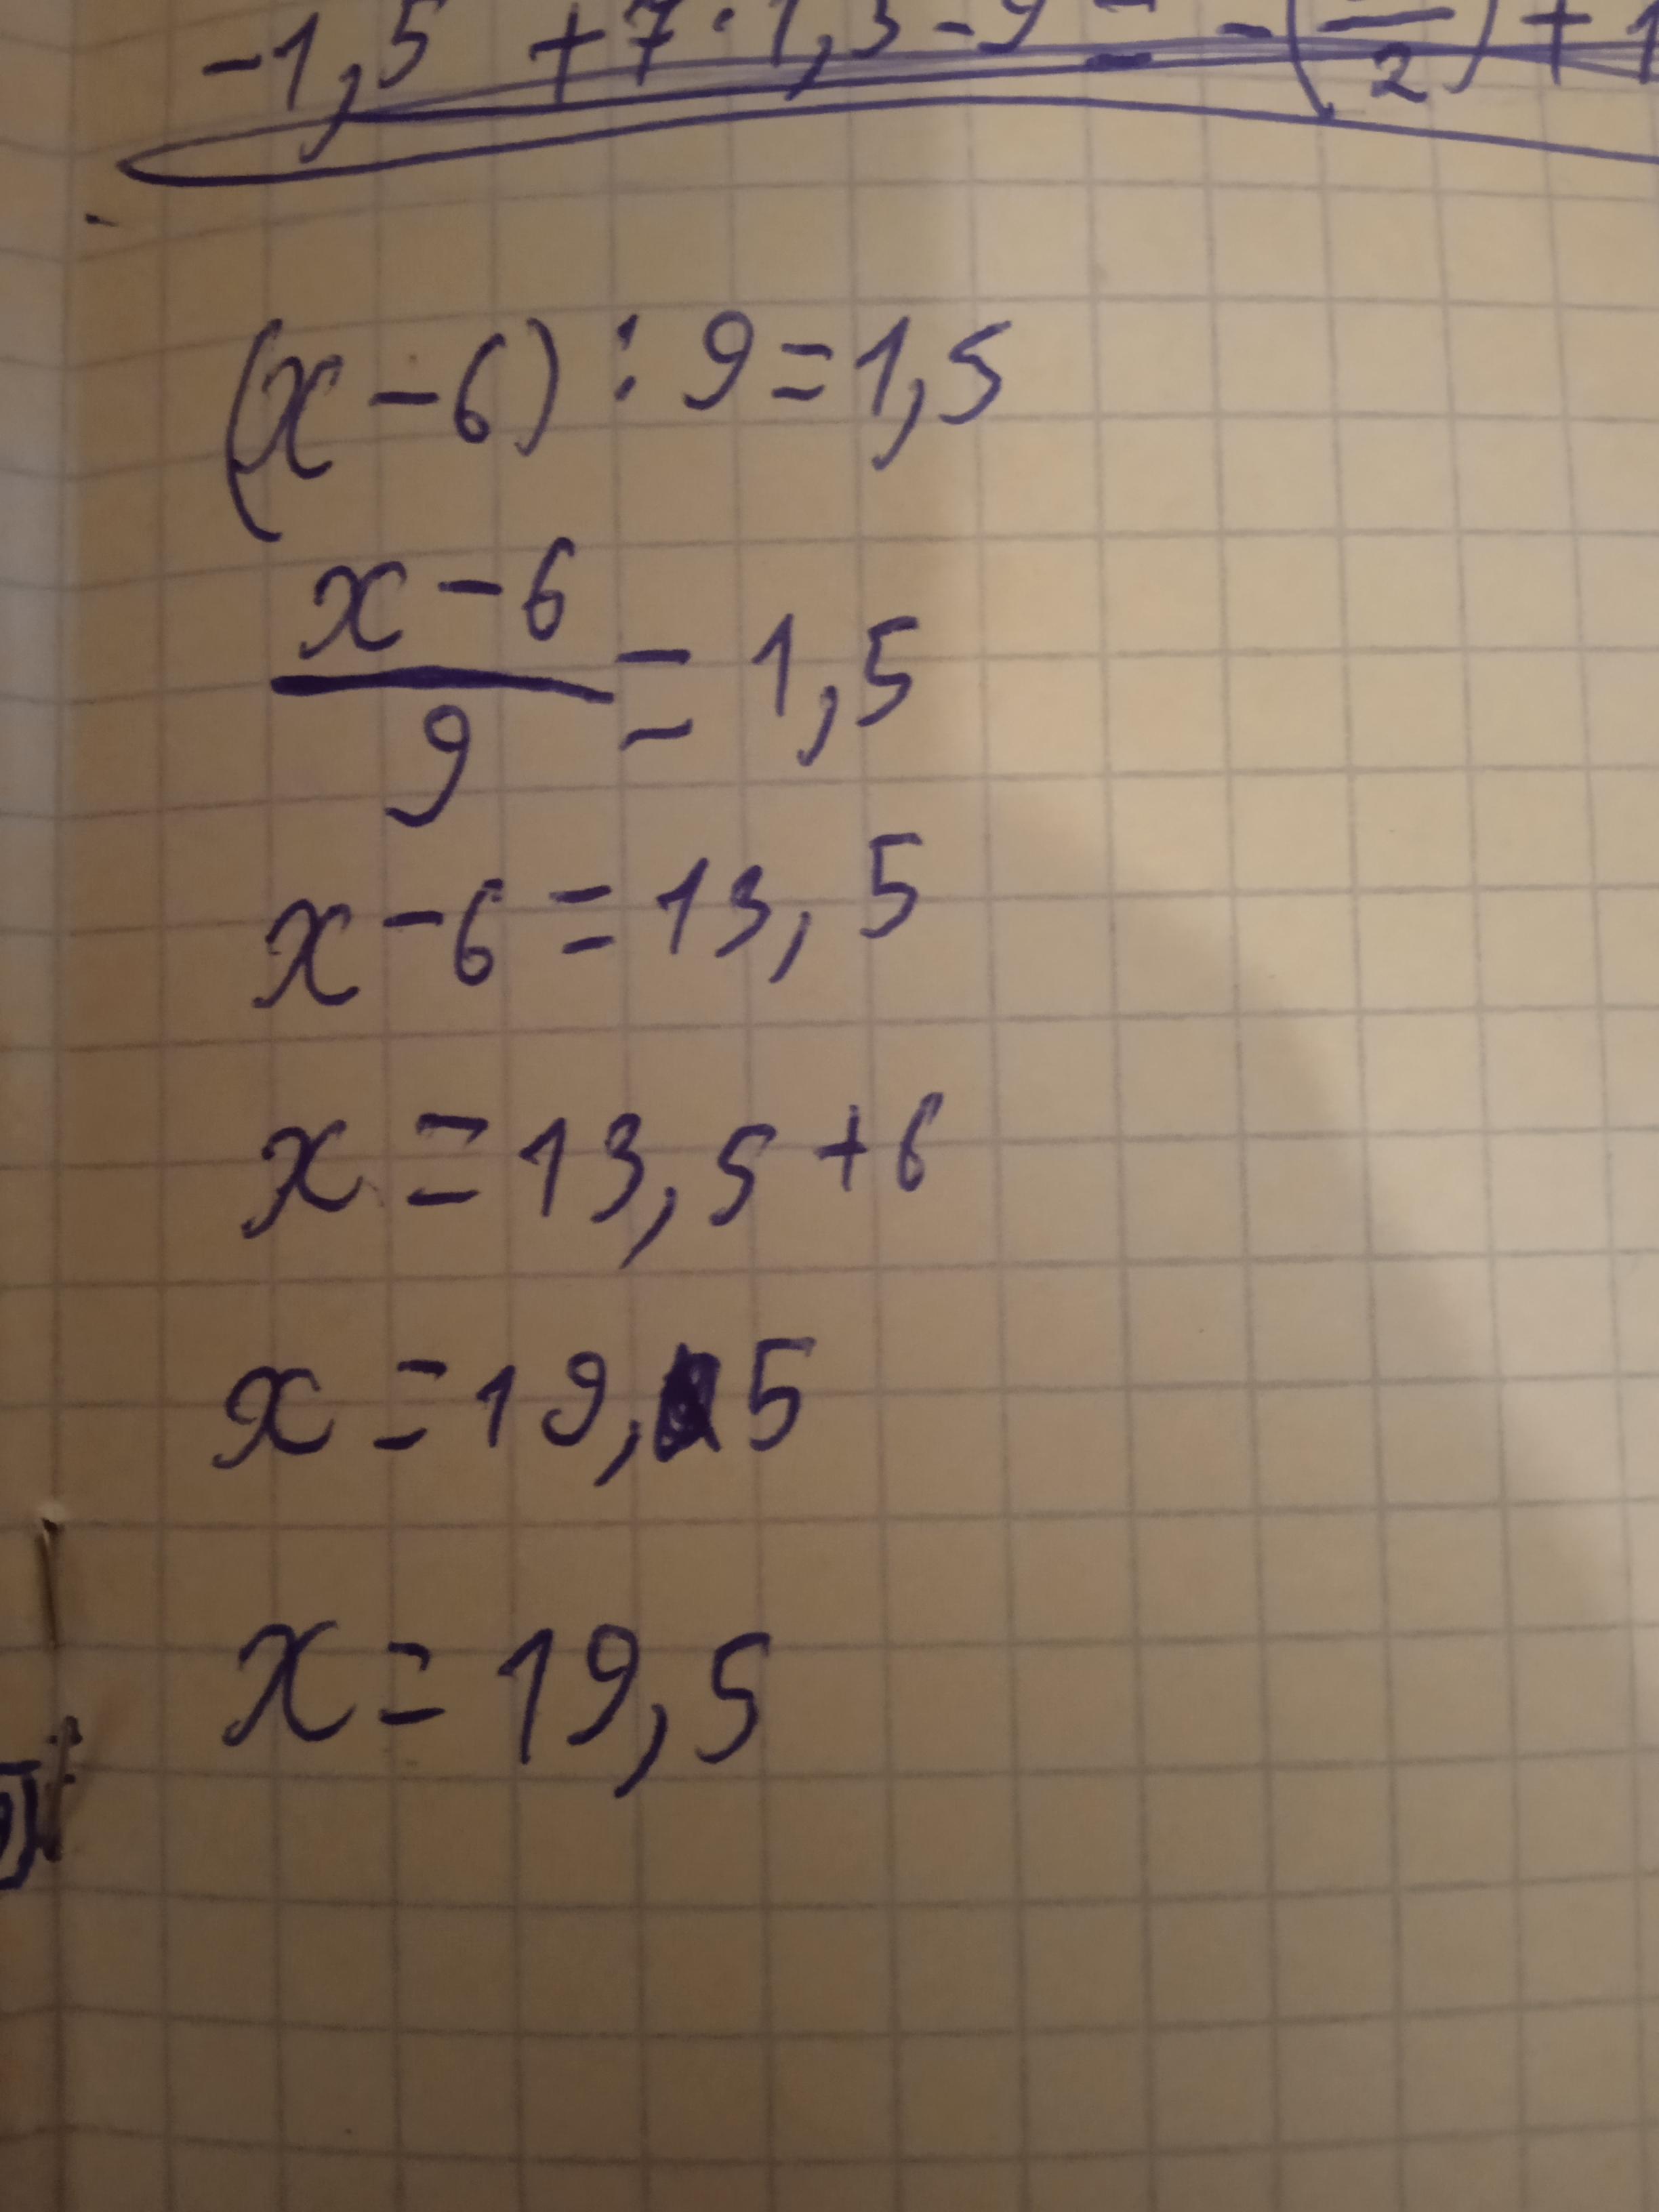 -1,5 + 7 · 1,3 - 9 = - ( 2 ) + 1
(x - 6) : 9 = 1,5
x - 6
9 = 1,5
x - 6 = 13,5
x = 13,5 + 6
x = 19,5
x = 19,5